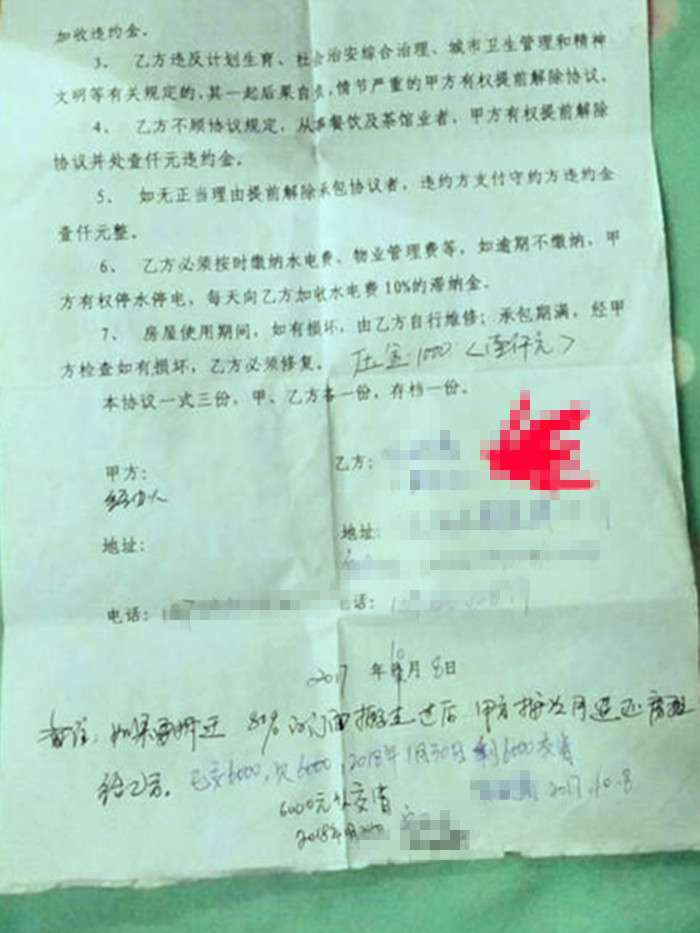 加收违约金。
3、 乙方违反计划生育、社会治安综合治理、城市卫生管理和精神
文明等有关规定的，其一起后果自负，情节严重的甲方有权提前解除协议。
4、 乙方不顾协议规定，从事餐饮及茶馆业者，甲方有权提前解除
协议并处壹仟元违约金。
5、 如无正当理由提前解除承包协议者，违约方支付守约方违约金
壹仟元整。
6、 乙方必须按时缴纳水电费、物业管理费等，如逾期不缴纳，甲
方有权停水停电，每天向乙方加收水电费10%的滞纳金。
7、 房屋使用期间，如有损坏，由乙方自行维修；承包期满，经甲
方检查如有损坏，乙方必须修复。 压金：1000（壹仟元）
本协议一式三份，甲、乙方各一份，存档一份。
甲方： 乙方：
经由人
地址： 地址：
电话： 电话：
2017 年 10 月 8 日
备注：如果 80% 的门面搬走过后 甲方按次月退还房租
给乙方。已交6000，欠6000，2018年1月30日剩6000交清
2017.10.8
6000元已交清
2018年